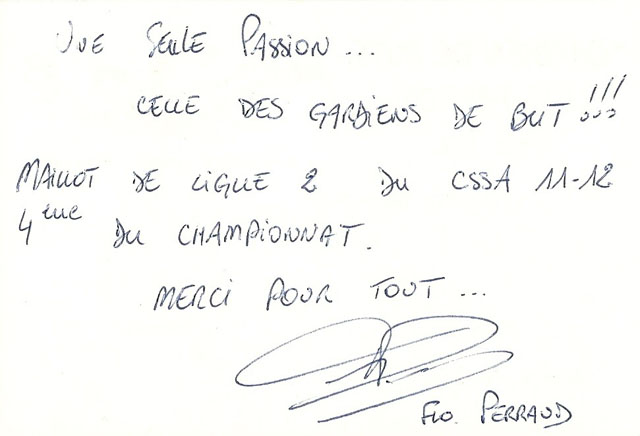 UNE SEULE PASSION...
CELLE DES GARDIENS DE BUT !!!
MAILLOT DE LIGUE 2 DU CSSA 11-12
4ème DU CHAMPIONNAT.
MERCI POUR TOUT...
FLO. PERRAUD